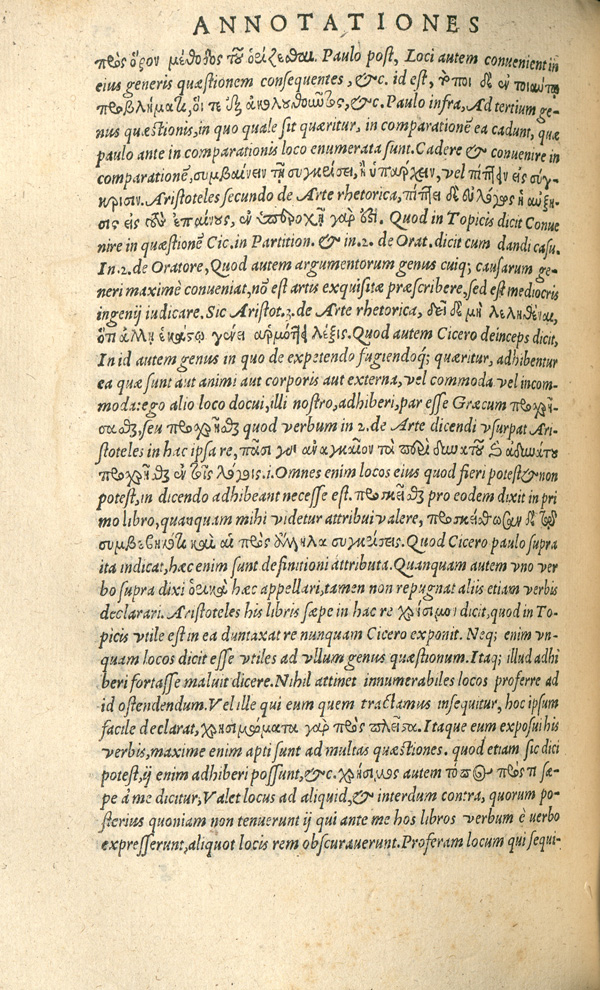 ANNOTATIONES
πρὸς ὅρον μέθοδος τοῦ ὁρίζεσθαι. Paulo post, Loci autem convenient in
eius generis quæstionem consequentes, &c. id est, τόποι δὲ ἐν τοιούτῳ
προβλήματι, οἵ τε ἐξ ἀκολουθούντων, &c. Paulo infra, Ad tertium ge-
nus quæstionis, in quo quale sit quæritur, in comparationē ea cadunt, quæ
paulo ante in comparationis loco enumerata sunt. Cadere & convenire in
comparationē, συμβαίνειν τῇ συγκρίσει, ἢ ὑπάρχειν, vel πίπτειν εἰς σύγ-
κρισιν. Aristoteles secundo de Arte rhetorica, πίπτει δὲ εὐλόγως ἡ αὔξη-
σις εἰς τοὺς ἐπαίνους, ἐν ὑπεροχῇ γάρ ἐστι. Quod in Topicis dicit Conve
nire in quæstionē Cic. in Partition. & in .2. de Orat. dicit cum dandi casu.
In .2. de Oratore, Quod autem argumentorum genus cuiq; causarum ge-
neri maximè conveniat, nō est artis exquisitæ præscribere, sed est mediocris
ingenij iudicare. Sic Aristot. 3. de Arte rhetorica, δεῖ δὲ μὴ λεληθέναι,
ὅτι ἄλλη ἑκάστῳ γένει ἁρμόττει λέξις. Quod autem Cicero deinceps dicit,
In id autem genus in quo de expetendo fugiendoq; quæritur, adhibentur
ea quæ sunt aut animi aut corporis aut externa, vel commoda vel incom-
moda: ego alio loco docui, illi nostro, adhiberi, par esse Græcum προσχρῆ-
σθαι, seu προσχρῆσθαι quod verbum in 2. de Arte dicendi vsurpat Ari-
stoteles in hac ipsa re, πᾶσι γὰρ ἀναγκαῖον τὰ περὶ δυνατοῦ καὶ ἀδυνάτου
προσχρῆσθαι ἐν τοῖς λόγοις .i. Omnes enim locos eius quod fieri potest & non
potest, in dicendo adhibeant necesse est. προσκεῖσθαι pro eodem dixit in pri
mo libro, quanquam mihi videtur attribui valere, προσκείσθωσαν δὲ τοῖς
συμβεβηκόσι καὶ αἱ πρὸς ἄλληλα συγκρίσεις. Quod Cicero paulo supra
ita indicat, hæc enim sunt definitioni attributa. Quanquam autem vno ver
bo supra dixi ὁρικὰ hæc appellari, tamen non repugnat aliis etiam verbis
declarari. Aristoteles his libris sæpe in hac re χρήσιμοι dicit, quod in To-
picis vtile est in ea duntaxat re nunquam Cicero exponit. Neq; enim vn-
quam locos dicit esse vtiles ad vllum genus quæstionum. Itaq; illud adhi
beri fortasse maluit dicere. Nihil attinet innumerabiles locos proferre ad
id ostendendum. Vel ille qui eum quem tractamus insequitur, hoc ipsum
facile declarat, χρησιμώτατα γὰρ πρὸς πλεῖστα. Itaque eum exposui his
verbis, maxime enim apti sunt ad multas quæstiones. quod etiam sic dici
potest, ij enim adhiberi possunt, &c. χρήσιμος autem τόπος πρός τι sæ-
pe à me dicitur, Valet locus ad aliquid, & interdum contra, quorum po-
sterius quoniam non tenuerunt ij qui ante me hos libros verbum è verbo
expresserunt, aliquot locis rem obscuraverunt. Proferam locum qui sequi-